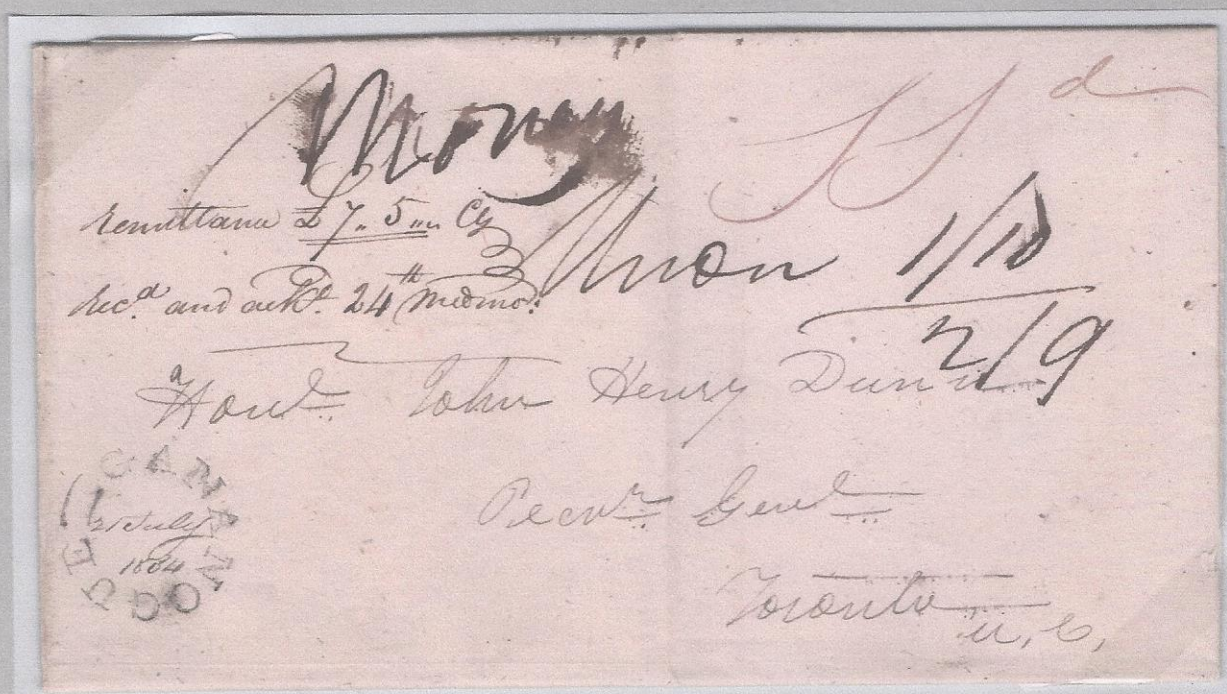 Money
d
remittance £7 . 5 .. Cy
1/10
Rec.d and ackd. 24th
2/9
Honbl John Henry Dunn
Recvr Genl
Toronto
U, C,
GANANOQUE
21 July
1834